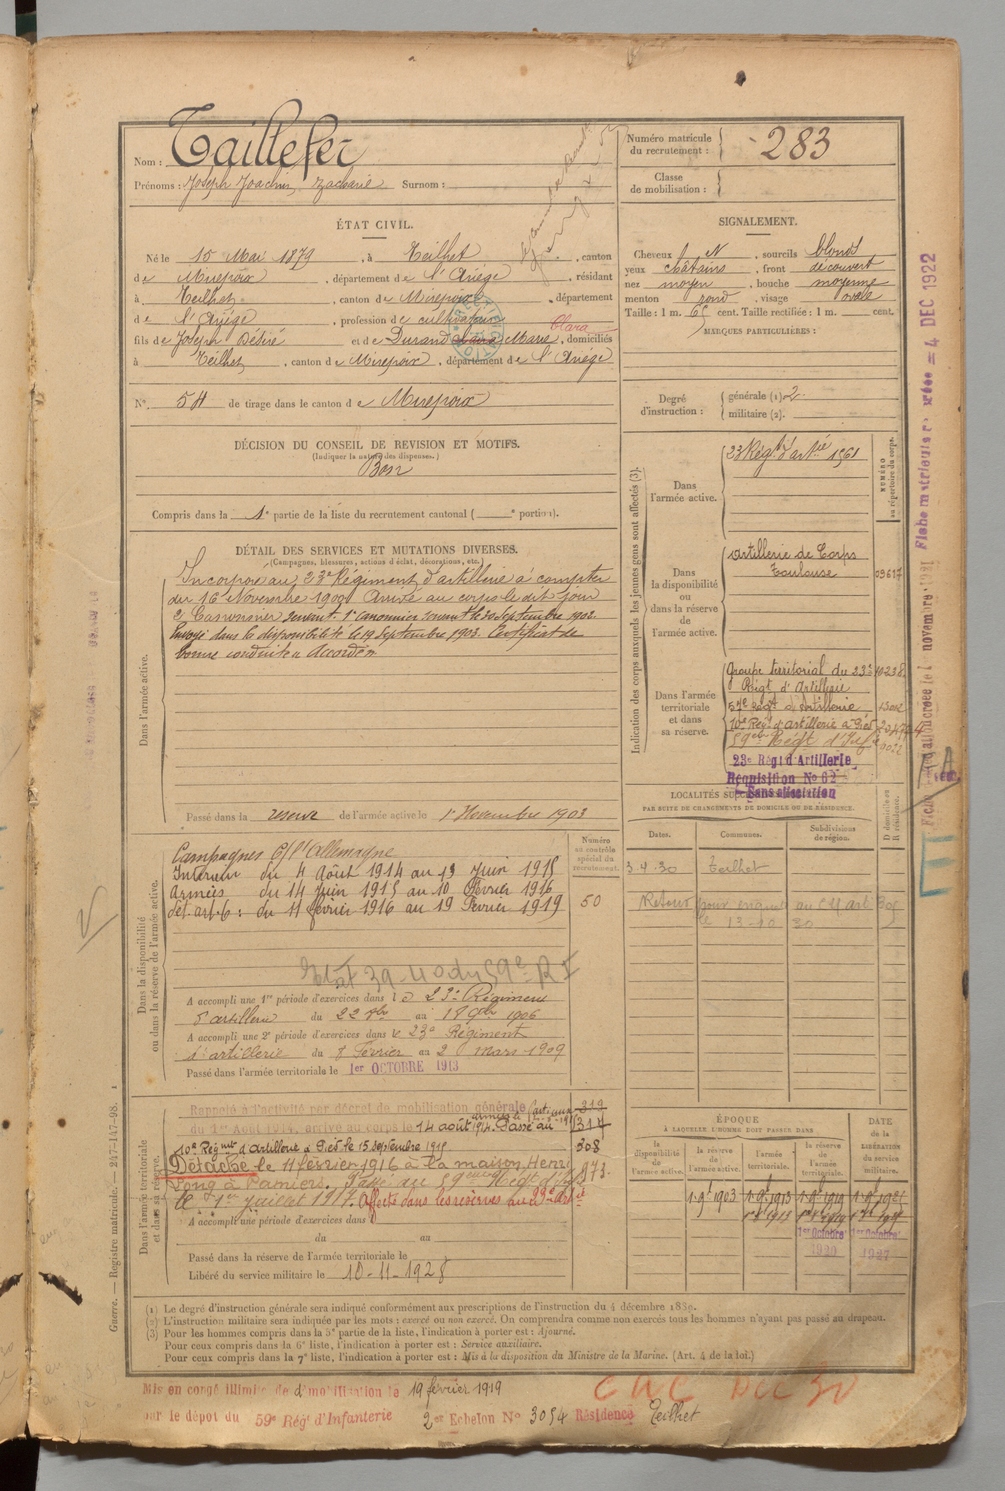 Nom : Taillefer
Prénoms : Joseph Joachim Zacharie Surnom :
Numéro matricule du recrutement : 283
Classe de mobilisation :
ÉTAT CIVIL.
Né le 15 Mai 1879, à Teilhet, canton
de Mirepoix, département de l'Ariège, résidant
à Teilhet, canton de Mirepoix, département
de l'Ariège, profession de cultivateur
fils de Joseph Désiré et de Durand Clara Marie, domiciliés
à Teilhet, canton de Mirepoix, département de l'Ariège
N° 54 de tirage dans le canton de Mirepoix
SIGNALEMENT.
Cheveux N, sourcils blonds
yeux châtains, front découvert
nez moyen, bouche moyenne
menton rond, visage ovale
Taille : 1 m. 65 cent. Taille rectifiée : 1 m. cent.
MARQUES PARTICULIÈRES :
Degré d'instruction : générale (1) 2
militaire (2).
DÉCISION DU CONSEIL DE REVISION ET MOTIFS.
(Indiquer la nature des dispenses.)
Bon
Compris dans la 1e partie de la liste du recrutement cantonal ( e portion).
DÉTAIL DES SERVICES ET MUTATIONS DIVERSES.
(Campagnes, blessures, actions d'éclat, décorations, etc.)
Dans l'armée active.
Incorporé au 23e Régiment d'artillerie à compter
du 16 Novembre 1900 Arrivé au corps le dit jour
2e Canonnier servant. 1er canonnier servant le 20 septembre 1902.
Envoyé dans la disponibilité le 19 Septembre 1903. Certificat de
bonne conduite Accordé
Passé dans la réserve de l'armée active le 1er Novembre 1903
Indication des corps auxquels les jeunes gens sont affectés (3).
NUMÉRO au répertoire du corps.
Dans l'armée active.
23 Régt d'artie 1561
Dans la disponibilité ou dans la réserve de l'armée active.
artillerie de Corps
Toulouse 03617
Dans l'armée territoriale et dans sa réserve.
Groupe territorial du 23e 10238
Régt d'Artillerie
57e Régt d'Artillerie
10e Régt d'artillerie à Pied
59e Régt d'Infie
23e Régt d'Artillerie
Réquisition No 62
Sans affectation
LOCALITÉS SUCCESSIVES
PAR SUITE DE CHANGEMENTS DE DOMICILE OU DE RÉSIDENCE.
D domicile ou R résidence.
Dates. Communes. Subdivisions de région.
3.4.30 Teilhet
Retour pour emarg au
le 13-10 30
Dans la disponibilité ou dans la réserve de l'armée active.
Numéro au contrôle spécial du recrutement.
50
Campagnes C/ l'Allemagne
Intérieur du 4 Août 1914 au 13 Juin 1915
Armées du 14 Juin 1915 au 10 Février 1916
dét. art. 6 : du 11 février 1916 au 19 Février 1919
du 59e R I
A accompli une 1re période d'exercices dans le 23e Régiment
d'artillerie du 22 8bre au 18 9bre 1906
A accompli une 2e période d'exercices dans le 23e Régiment
d'artillerie du 8 Février au 2 mars 1909
Passé dans l'armée territoriale le 1er OCTOBRE 1913
Dans l'armée territoriale et dans sa réserve.
Rappelé à l'activité par décret de mobilisation générale
du 1er Août 1914, arrivé au corps le 14 août 1914. Passé au
10e Régiment d'Artillerie à Pied le 15 septembre 1915
Détaché le 11 février 1916 à la maison Henri
à Pamiers. Passé au 59eme Régt d'Inf
le 1er juillet 1917. Affecté dans les réserves au 23e Art
319
317
308
973
A accompli une période d'exercices dans
du au
Passé dans la réserve de l'armée territoriale le
Libéré du service militaire le 10-11-1928
ÉPOQUE À LAQUELLE L'HOMME DOIT PASSER DANS
la disponibilité de l'armée active. la réserve de l'armée active. l'armée territoriale. la réserve de l'armée territoriale. DATE de la LIBÉRATION du service militaire.
1er 9bre 1903 1er 9bre 1913 1er 9bre 1919
1er 8bre 1913 1er 8bre 1919
1er Octobre 1920 1er Octobre 1927
(1) Le degré d'instruction générale sera indiqué conformément aux prescriptions de l'instruction du 4 décembre 1889.
(2) L'instruction militaire sera indiquée par les mots : exercé ou non exercé. On comprendra comme non exercés tous les hommes n'ayant pas passé au drapeau.
(3) Pour les hommes compris dans la 5e partie de la liste, l'indication à porter est : Ajourné.
Pour ceux compris dans la 6e liste, l'indication à porter est : Service auxiliaire.
Pour ceux compris dans la 7e liste, l'indication à porter est : Mis à la disposition du Ministre de la Marine. (Art. 4 de la loi.)
Mis en congé illimité de démobilisation le 19 février 1919
par le dépôt du 59e Régt d'Infanterie 2e Echelon No 3054 Résidence Teilhet
Guerre. — Registre matricule. — 247-147-98.
Fiche matricule créée le 4 DEC 1922